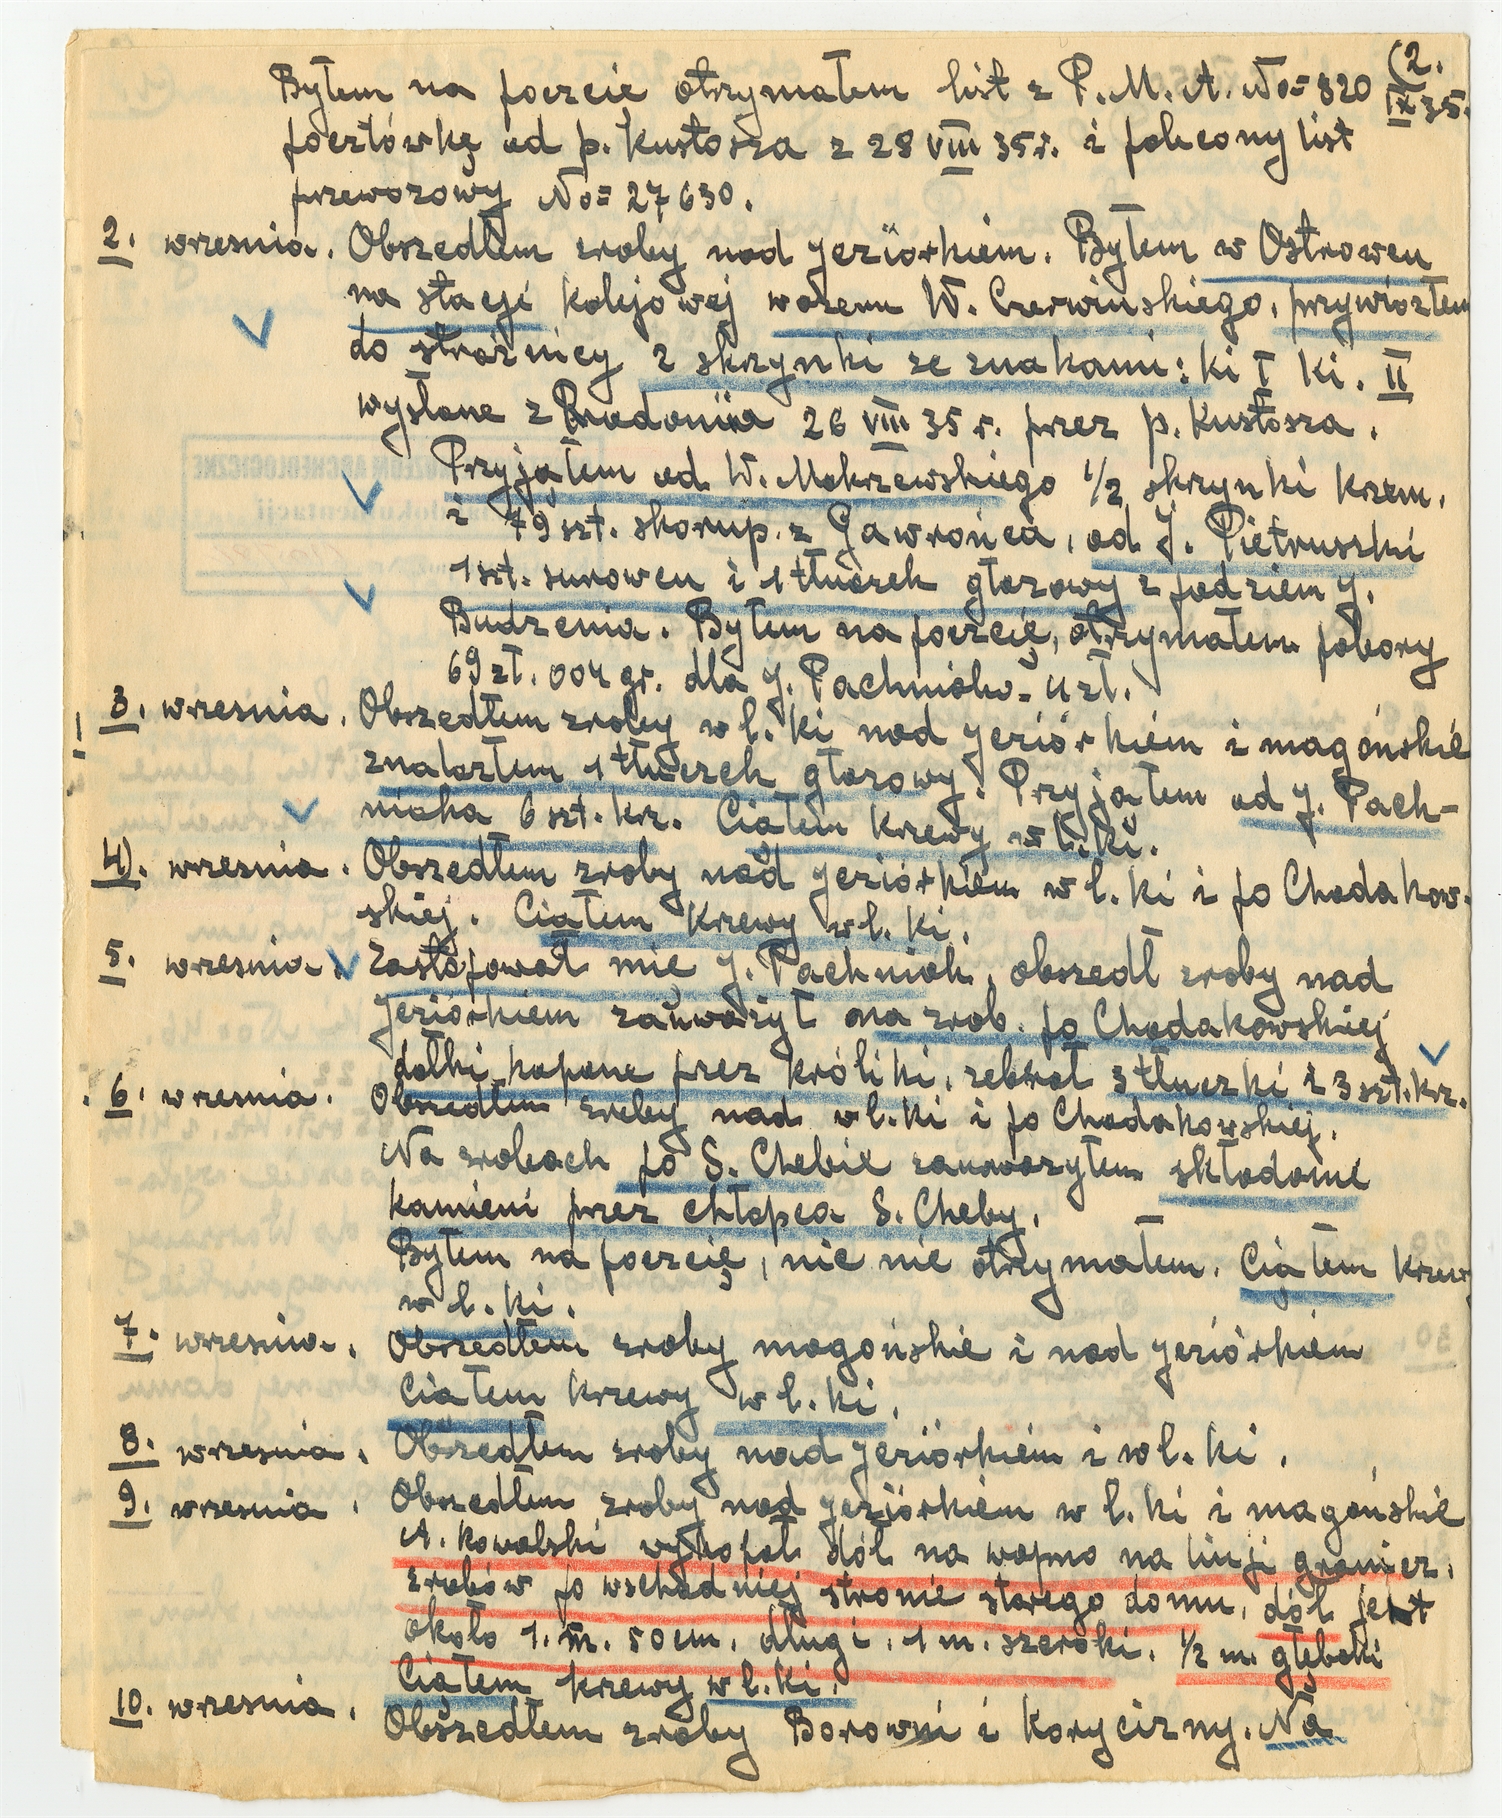 (2.
IX 35.
Byłem na poczcie otrzymałem list z P.M.A. No= 820
pocztówkę od p. Kustosza z 28 VIII 35 r. i polecony list
przewozowy No= 27630.
2. wresnia. Obszedłem zroby nad Jeziorkiem. Byłem w Ostrowcu
na stacji kolejowej wozem W. Czerwińskiego, przywiozłem
do strażnicy 2 skrzynki ze znakami: Ki I Ki. II
wysłane z Radonia 26 VIII 35 r. przez p. Kustosza.
Przyjąłem od W. Mokrzewskiego 1/2 skrzynki krzem.
i 79 szt. skorup. z Gawrońca, od J. Pietruszki
1 szt. surowcu i 1 tłuczek głazowy z podziemy J.
Budzenia. Byłem na poczcie, otrzymałem pobory
69 zł. 004 gr. dla J. Pachniakw= 11 zł.
3. wresnia. Obszedłem zroby w l. Ki nad Jeziorkiem i magońskie
znalazłem 1 tłuczek głazowy. Przyjąłem od J. Pach-
niaka 6 szt. krz. Ciąłem krzewy w l. Ki.
4). wresnia. Obszedłem zroby nad Jeziorkiem w l. Ki i po Chodakow-
skiej. Ciąłem krzewy w l. Ki.
5. wresnia. Zastępował mię J. Pachniak, obszedł zroby nad
Jeziorkiem zauważył na zrob. po Chodakowskiej
dołki kopane przez króliki, zebrał 3 tłuczki i 3 szt. krz.
6. wresnia. Obszedłem zroby nad w l. Ki i po Chodakowskiej.
Na zrobach po S. Chebie zauważyłem składanie
kamieni przez chłopca S. Cheby.
Byłem na poczcie, nic nie otrzymałem. Ciąłem krzewy
w l. Ki.
7. wresnia. Obszedłem zroby magońskie i nad Jeziorkiem
Ciąłem krzewy w l. Ki.
8. wresnia. Obszedłem zroby nad Jeziorkiem i w l. Ki.
9. wresnia. Obszedłem zroby nad Jeziorkiem w l. Ki i magońskie
A. Kowalski wykopał dół na wapno na linji granicz.
zrobów po wschodniej stronie starego domu, dół jest
około 1. m. 50 cm. długi, 1 m. szeroki. 1/2 m. głęboki
Ciąłem krzewy w l. Ki.
10. wresnia. Obszedłem zroby Borowni i Korycizny. Na